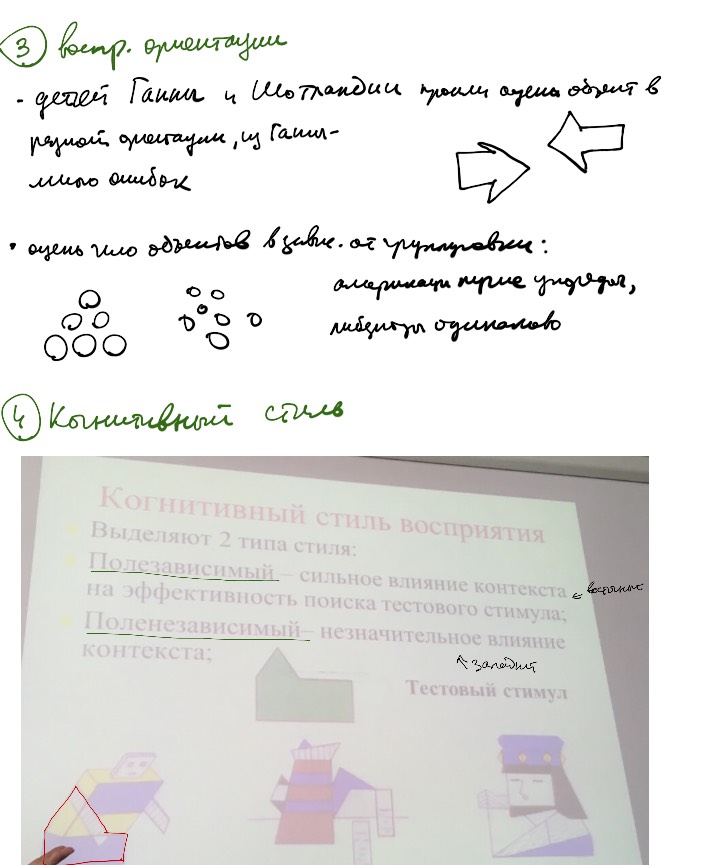 3 воспр. ориентации
- детей Ганы и Шотландии просили оценить объект в
разной ориентации, из Ганы-
много ошибок
• оценить число объектов в завис. от группировки:
американцы лучше упорядоч,
либерийцы одинаково
4 Когнитивный стиль
Когнитивный стиль восприятия
Выделяют 2 типа стиля:
Полезависимый – сильное влияние контекста
на эффективность поиска тестового стимула;
Поленезависимый– незначительное влияние
контекста;
западный
Тестовый стимул